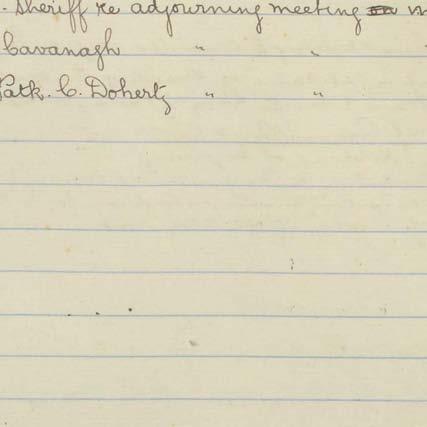 . Sheriff re adjourning meeting
Cavanagh " "
Patk. C. Doherty " "